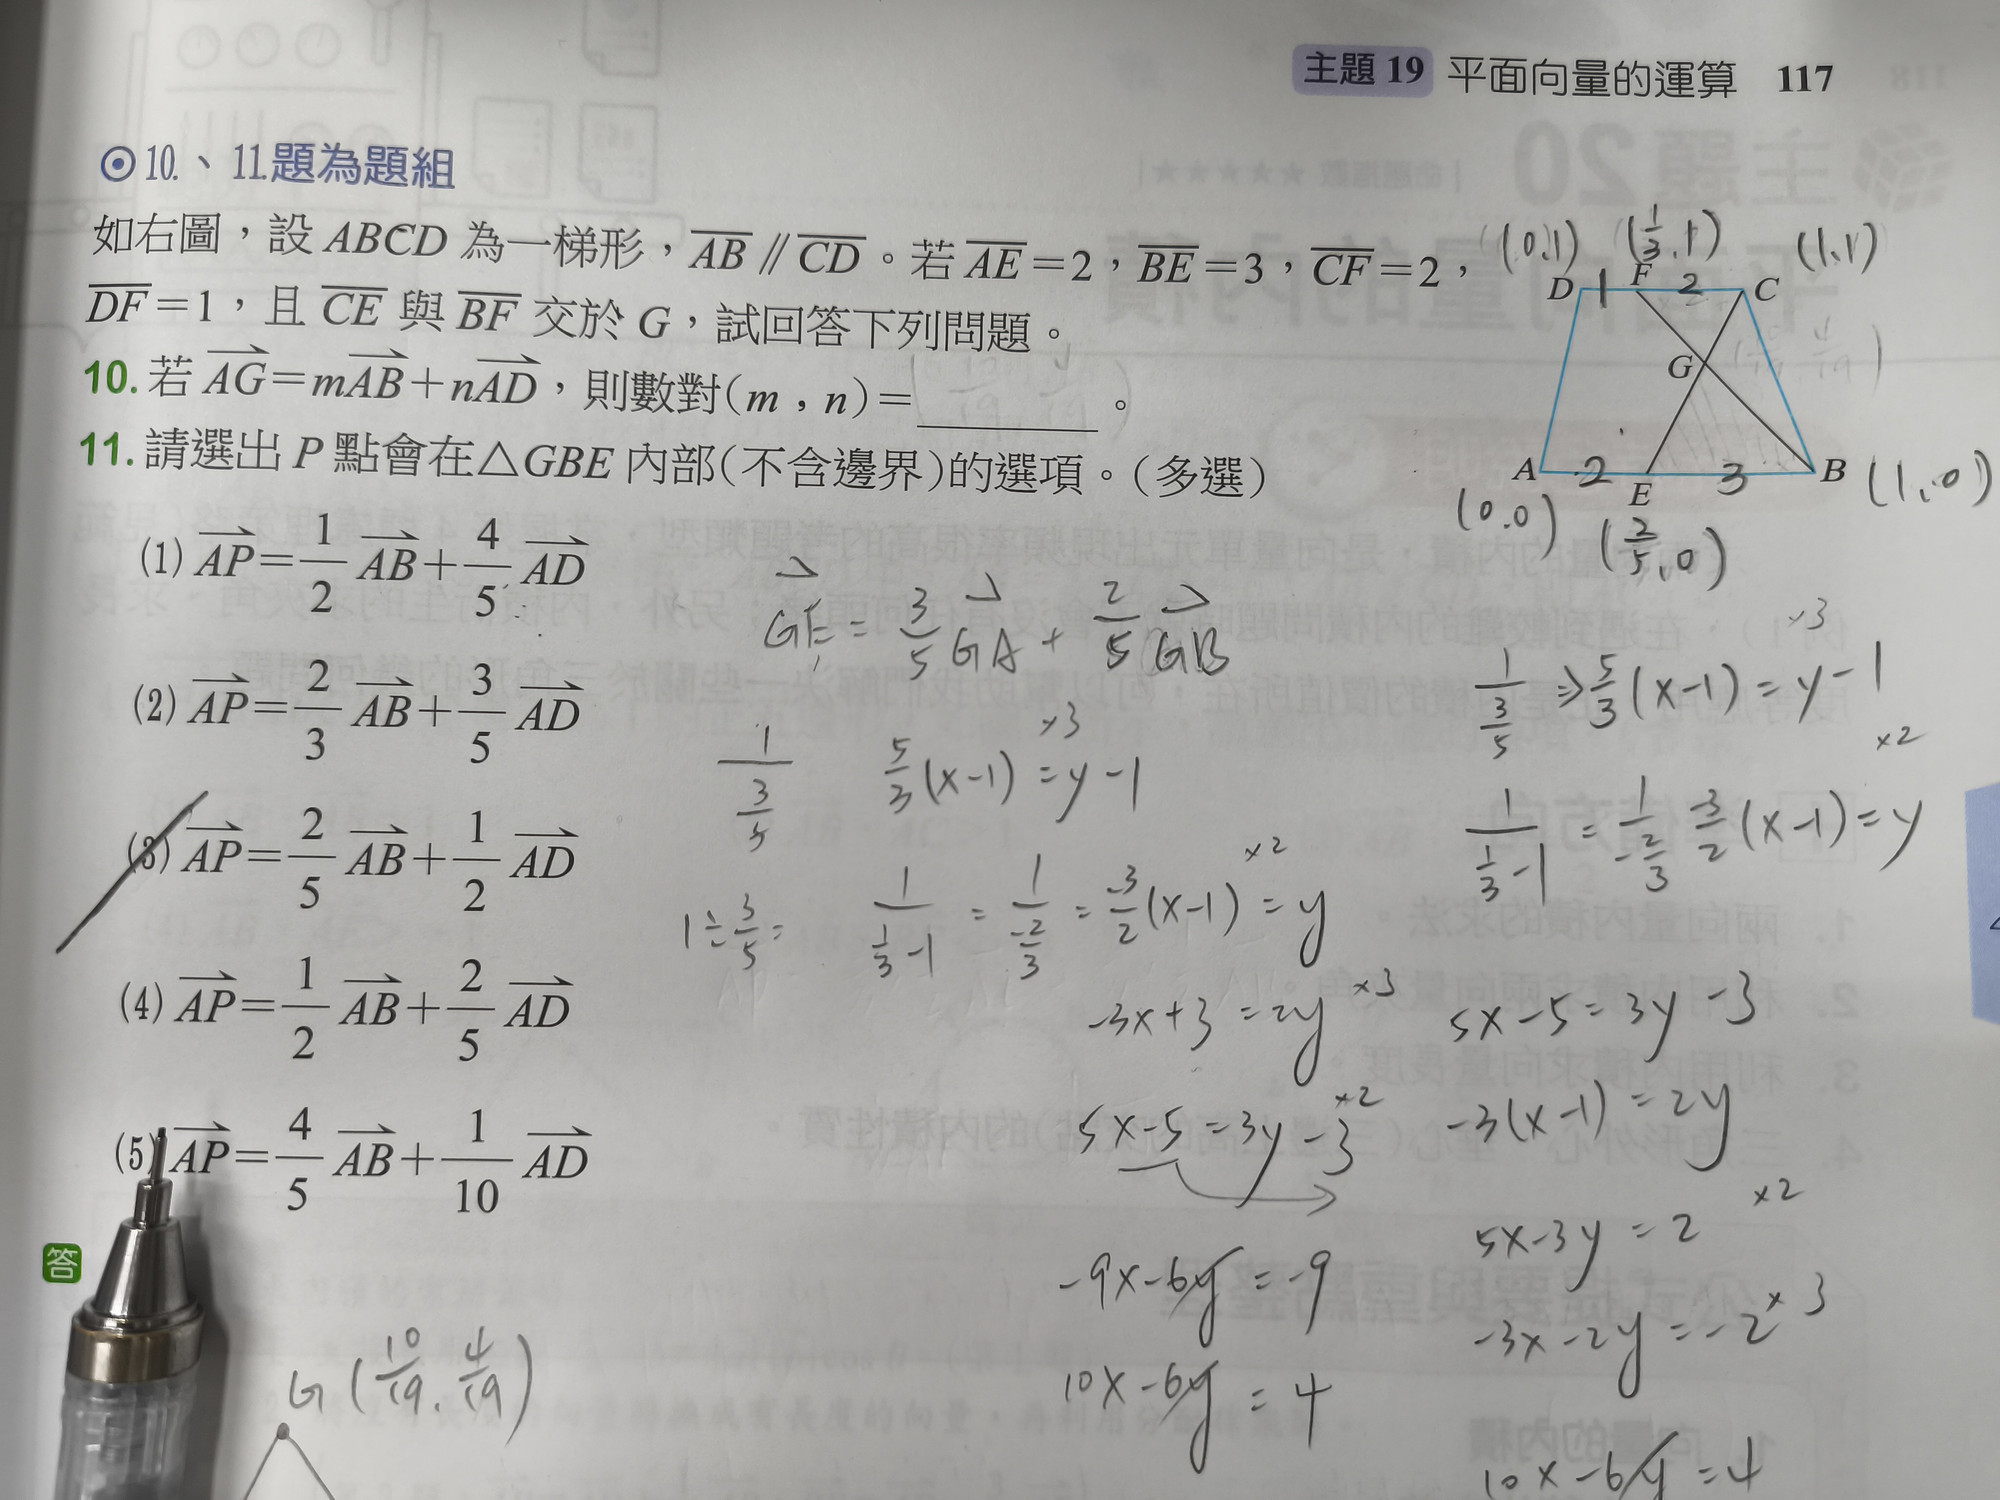 主題 19 平面向量的運算 117
⊙10.、11.題為題組
如右圖，設 ABCD 為一梯形，AB // CD。若 AE = 2，BE = 3，CF = 2，
DF = 1，且 CE 與 BF 交於 G，試回答下列問題。
10. 若 AG = mAB + nAD，則數對(m , n) = ______。
11. 請選出 P 點會在△GBE 內部(不含邊界)的選項。(多選)
(0.1) (1/3, 1) (1,1)
D 1 F 2 C
G
A 2 E 3 B (1,0)
(0.0) (2/5, 0)
(1) AP = 1/2 AB + 4/5 AD
(2) AP = 2/3 AB + 3/5 AD
(3) AP = 2/5 AB + 1/2 AD
(4) AP = 1/2 AB + 2/5 AD
(5) AP = 4/5 AB + 1/10 AD
答
G (10/19, 4/19)
GE = 3/5 GA + 2/5 GB
1/(3/5) 5/3(x-1) = y-1 ×3
1÷3/5= 1/(1/3-1) = 1/(-2/3) = -3/2(x-1) = y ×2
-3x+3 = 2y ×3
5x-5 = 3y-3 ×2
-9x-6y = -9
10x-6y = 4
×3
1/(3/5) ⇒ 5/3(x-1) = y-1
×2
1/(1/3-1) = 1/(-2/3) -3/2(x-1) = y
5x-5 = 3y-3
-3(x-1) = 2y
5x-3y = 2 ×2
-3x-2y = -2 ×3
10x-6y = 4